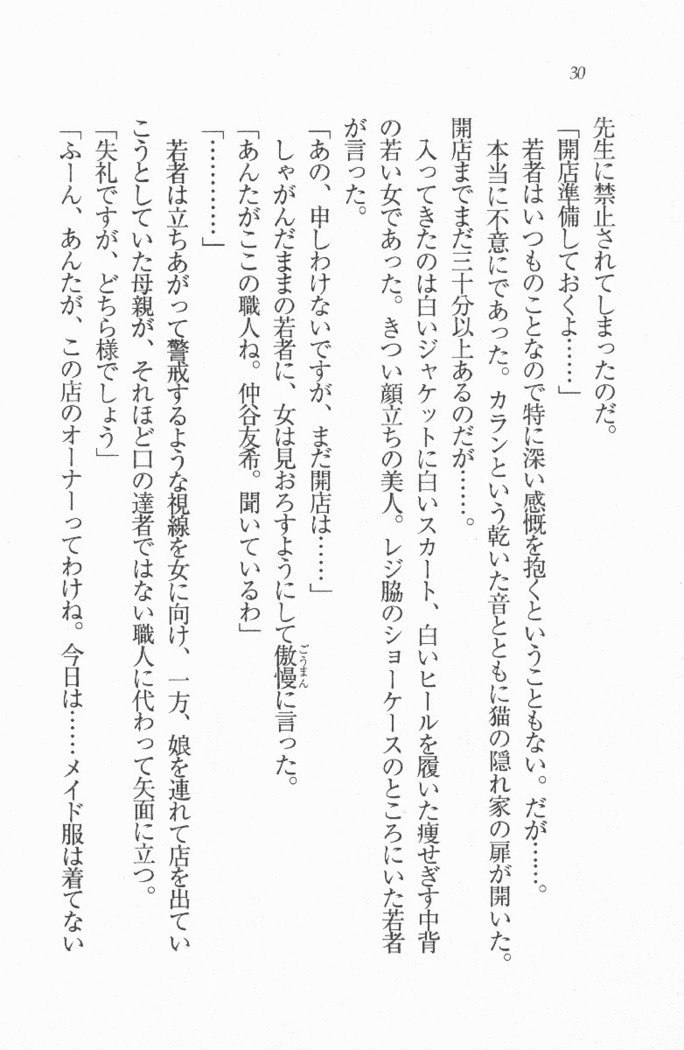 30
先生に禁止されてしまったのだ。
「開店準備しておくよ……」
若者はいつものことなので特に深い感慨を抱くということもない。だが……。
本当に不意にであった。カランという乾いた音とともに猫の隠れ家の扉が開いた。
開店までまだ三十分以上あるのだが……。
入ってきたのは白いジャケットに白いスカート、白いヒールを履いた痩せぎす中背
の若い女であった。きつい顔立ちの美人。レジ脇のショーケースのところにいた若者
が言った。
「あの、申しわけないですが、まだ開店は……」
しゃがんだままの若者に、女は見おろすようにして傲慢に言った。
ごうまん
「あんたがここの職人ね。仲谷友希。聞いているわ」
「…………」
若者は立ちあがって警戒するような視線を女に向け、一方、娘を連れて店を出てい
こうとしていた母親が、それほど口の達者ではない職人に代わって矢面に立つ。
「失礼ですが、どちら様でしょう」
「ふーん、あんたが、この店のオーナーってわけね。今日は……メイド服は着てない